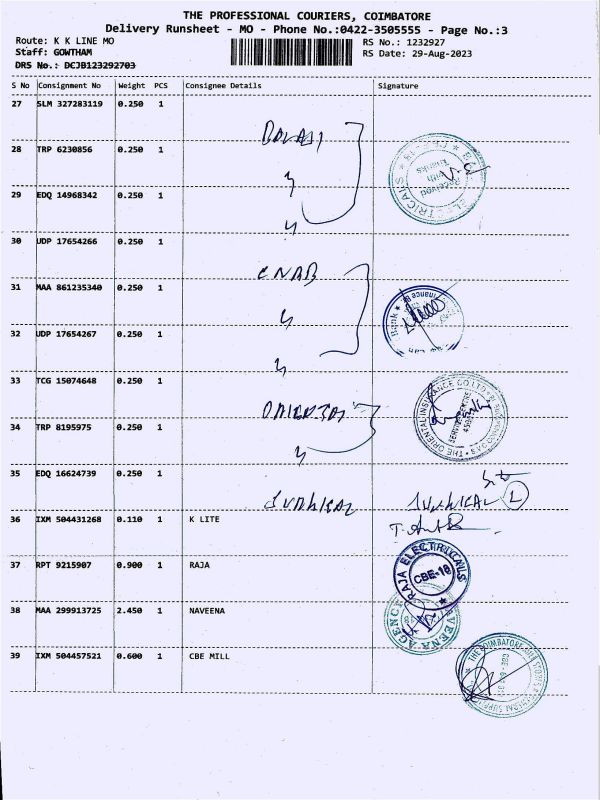 THE PROFESSIONAL COURIERS, COIMBATORE
Delivery Runsheet - MO - Phone No.:0422-3505555 - Page No.:3
Route: K K LINE MO
RS No.: 1232927
Staff: GOWTHAM
RS Date: 29-Aug-2023
DRS No.: DCJB123292703
S No Consignment No Weight PCS Consignee Details Signature
27 SLM 327283119 0.250 1
28 TRP 6230856 0.250 1
29 EDQ 14968342 0.250 1
30 UDP 17654266 0.250 1
31 MAA 861235340 0.250 1
32 UDP 17654267 0.250 1
33 TCG 15074648 0.250 1
34 TRP 8195975 0.250 1
35 EDQ 16624739 0.250 1
36 IXM 504431268 0.110 1 K LITE
37 RPT 9215907 0.900 1 RAJA
RAJA ELECTRICALS
CBE-18
38 MAA 299913725 2.450 1 NAVEENA
39 IXM 504457521 0.600 1 CBE MILL
ELECTRICALS
Received
With
Thanks
Bank
THE ORIENTAL INSURANCE CO LTD